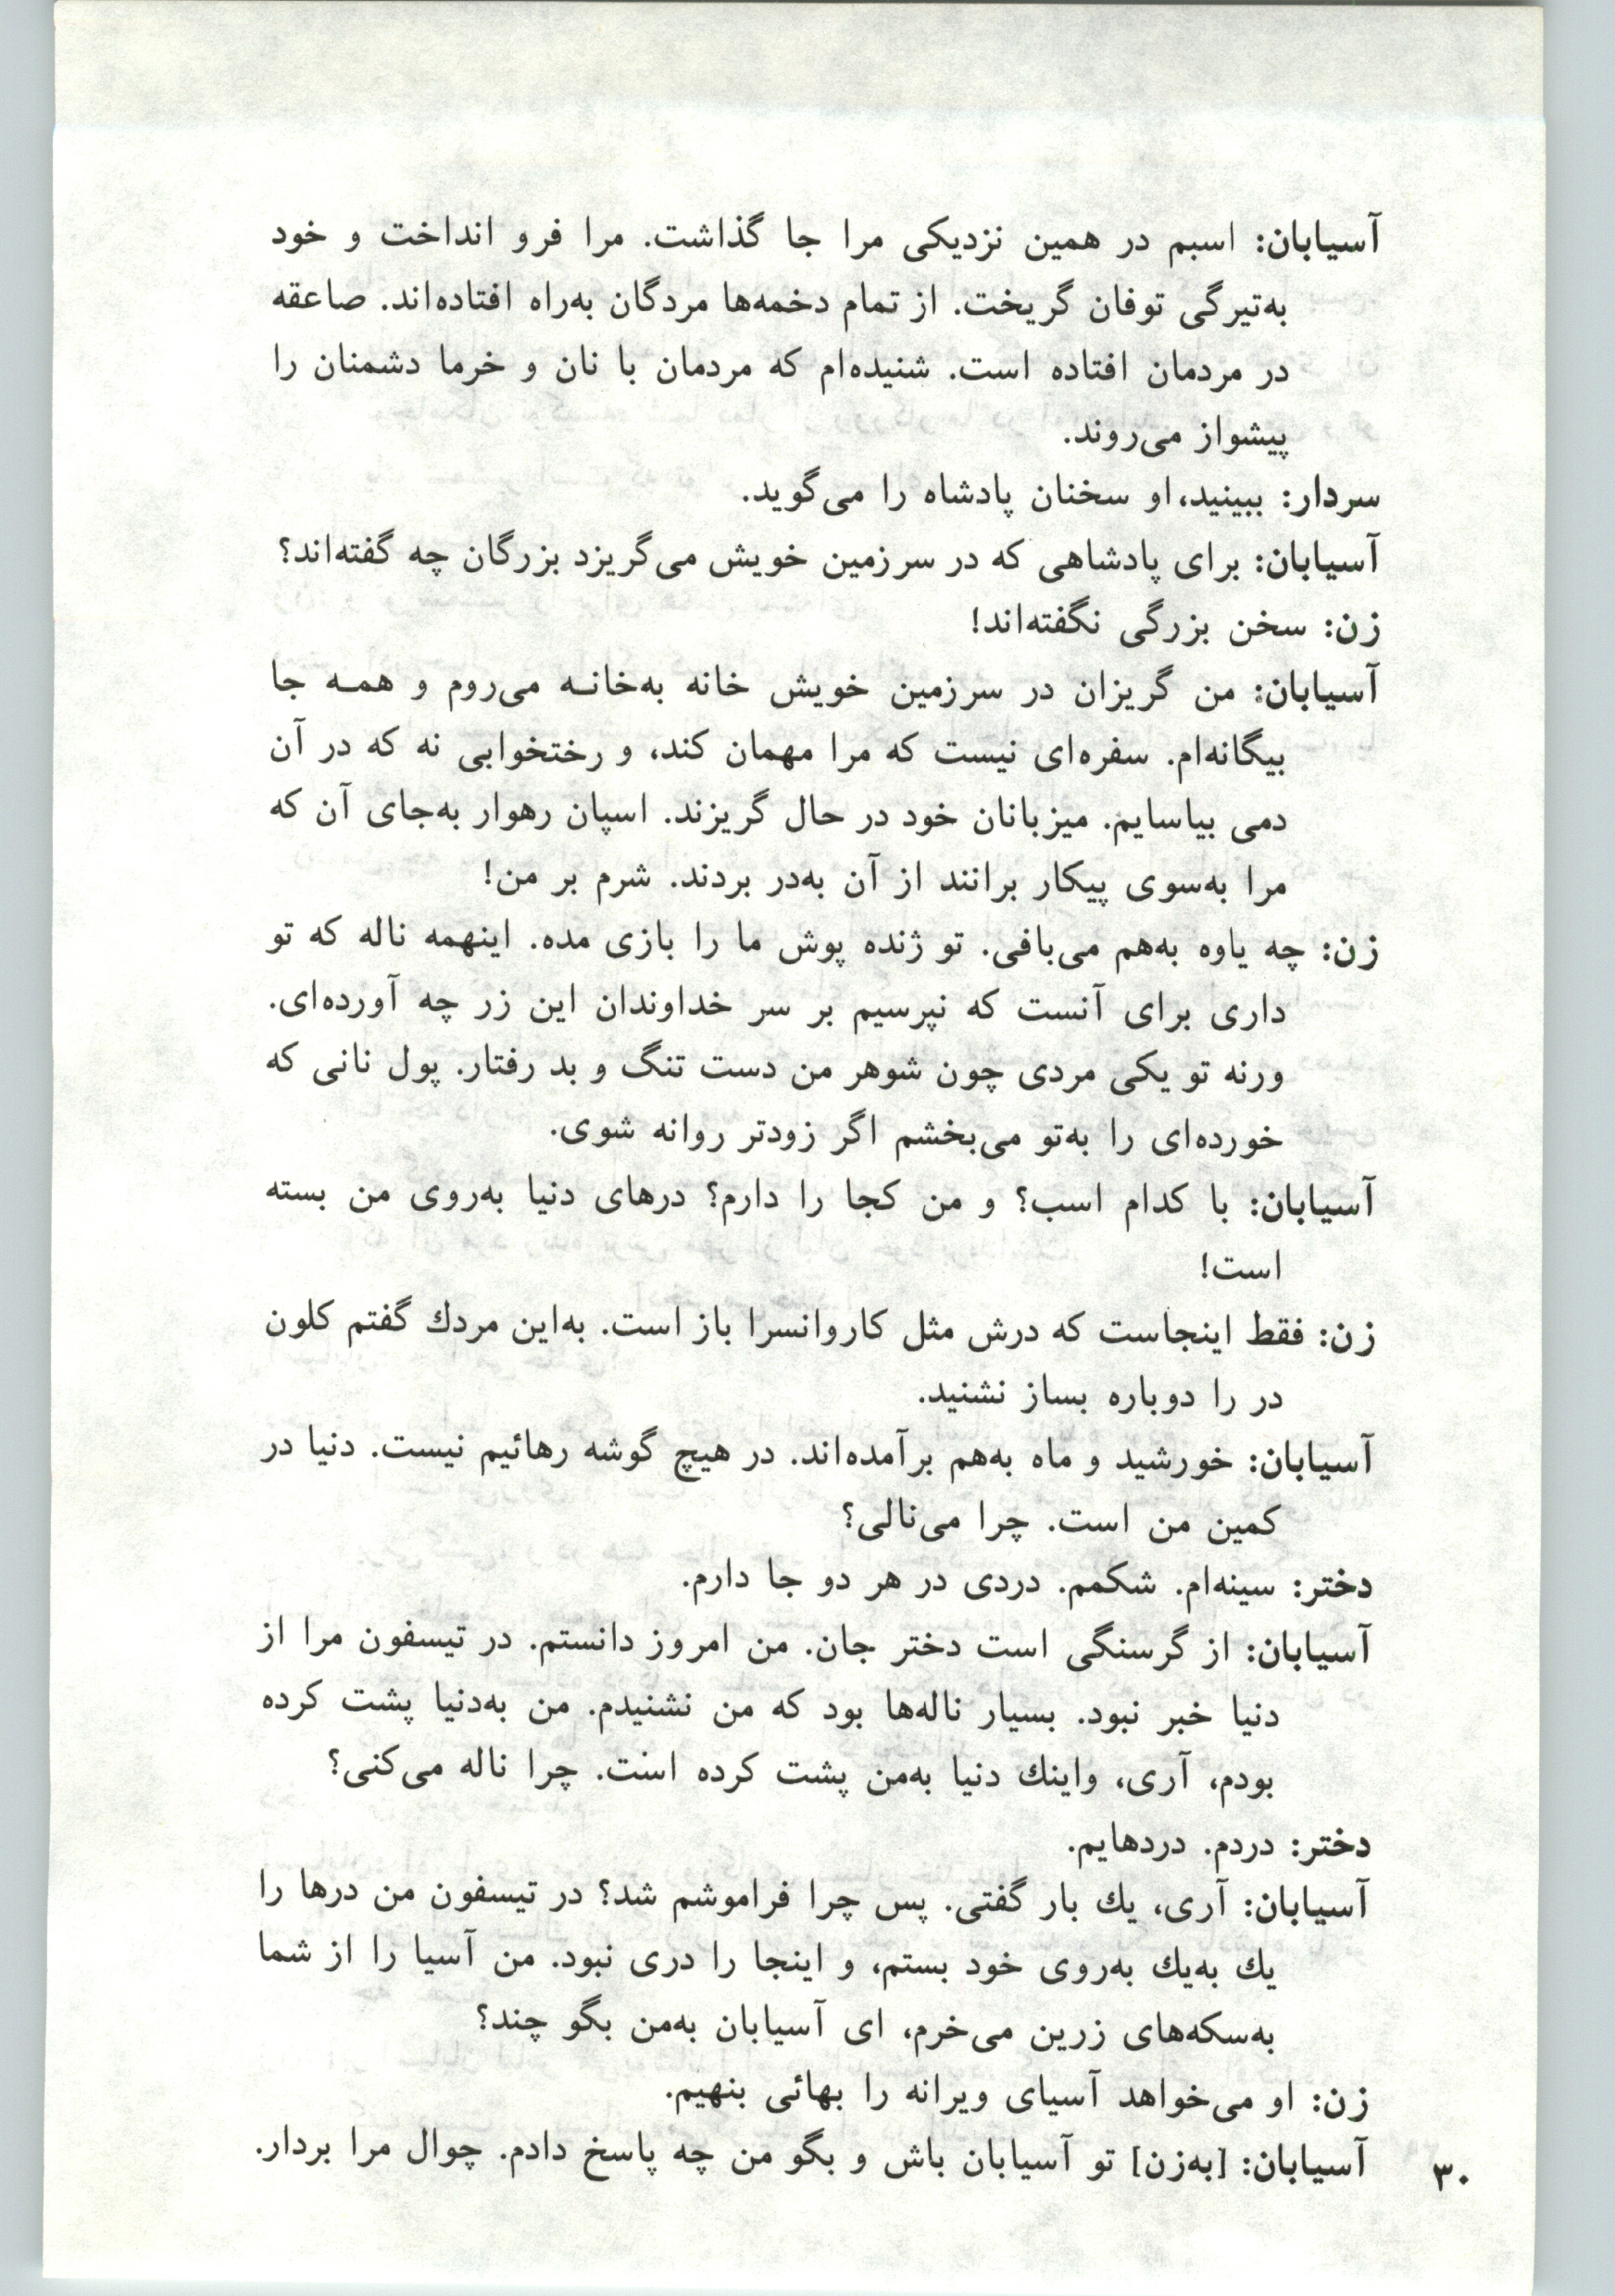 آسیابان: اسبم در همین نزدیکی مرا جا گذاشت. مرا فرو انداخت و خود
به‌تیرگی توفان گریخت. از تمام دخمه‌ها مردگان به‌راه افتاده‌اند. صاعقه
در مردمان افتاده است. شنیده‌ام که مردمان با نان و خرما دشمنان را
پیشواز می‌روند.
سردار: ببینید، او سخنان پادشاه را می‌گوید.
آسیابان: برای پادشاهی که در سرزمین خویش می‌گریزد بزرگان چه گفته‌اند؟
زن: سخن بزرگی نگفته‌اند!
آسیابان: من گریزان در سرزمین خویش خانه به‌خانـه می‌روم و همـه جا
بیگانه‌ام. سفره‌ای نیست که مرا مهمان کند، و رختخوابی نه که در آن
دمی بیاسایم. میزبانان خود در حال گریزند. اسپان رهوار به‌جای آن که
مرا به‌سوی پیکار برانند از آن به‌در بردند. شرم بر من!
زن: چه یاوه به‌هم می‌بافی. تو ژنده پوش ما را بازی مده. اینهمه ناله که تو
داری برای آنست که نپرسیم بر سر خداوندان این زر چه آورده‌ای.
ورنه تو یکی مردی چون شوهر من دست تنگ و بد رفتار. پول نانی که
خورده‌ای را به‌تو می‌بخشم اگر زودتر روانه شوی.
آسیابان: با کدام اسب؟ و من کجا را دارم؟ درهای دنیا به‌روی من بسته
است!
زن: فقط اینجاست که درش مثل کاروانسرا باز است. به‌این مردك گفتم کلون
در را دوباره بساز نشنید.
آسیابان: خورشید و ماه به‌هم برآمده‌اند. در هیچ گوشه رهائیم نیست. دنیا در
کمین من است. چرا می‌نالی؟
دختر: سینه‌ام. شکمم. دردی در هر دو جا دارم.
آسیابان: از گرسنگی است دختر جان. من امروز دانستم. در تیسفون مرا از
دنیا خبر نبود. بسیار ناله‌ها بود که من نشنیدم. من به‌دنیا پشت کرده
بودم، آری، واینك دنیا به‌من پشت کرده است. چرا ناله می‌کنی؟
دختر: دردم. دردهایم.
آسیابان: آری، یك بار گفتی. پس چرا فراموشم شد؟ در تیسفون من درها را
یك به‌یك به‌روی خود بستم، و اینجا را دری نبود. من آسیا را از شما
به‌سکه‌های زرین می‌خرم، ای آسیابان به‌من بگو چند؟
زن: او می‌خواهد آسیای ویرانه را بهائی بنهیم.
آسیابان: [به‌زن] تو آسیابان باش و بگو من چه پاسخ دادم. چوال مرا بردار.
۳۰